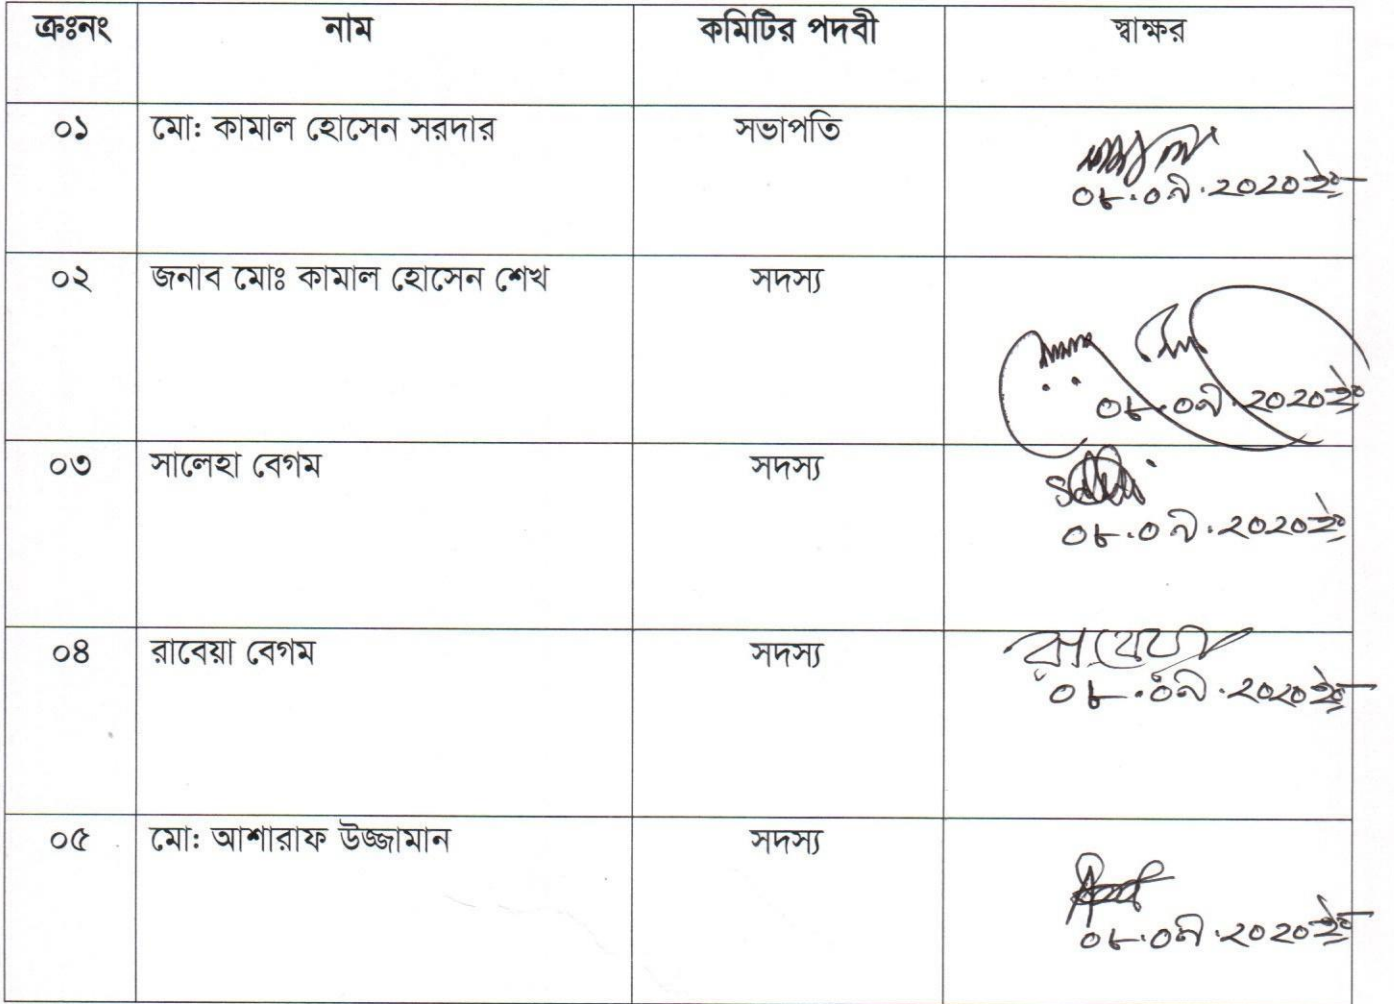 ক্রঃনং নাম কমিটির পদবী স্বাক্ষর
০১ মো: কামাল হোসেন সরদার সভাপতি
০৮.০৯.২০২০ইং
০২ জনাব মোঃ কামাল হোসেন শেখ সদস্য
০৮.০৯.২০২০ইং
০৩ সালেহা বেগম সদস্য
০৮.০৯.২০২০ইং
০৪ রাবেয়া বেগম সদস্য রাবেয়া
০৮.০৯.২০২০ইং
০৫ মো: আশারাফ উজ্জামান সদস্য
০৮.০৯.২০২০ইং